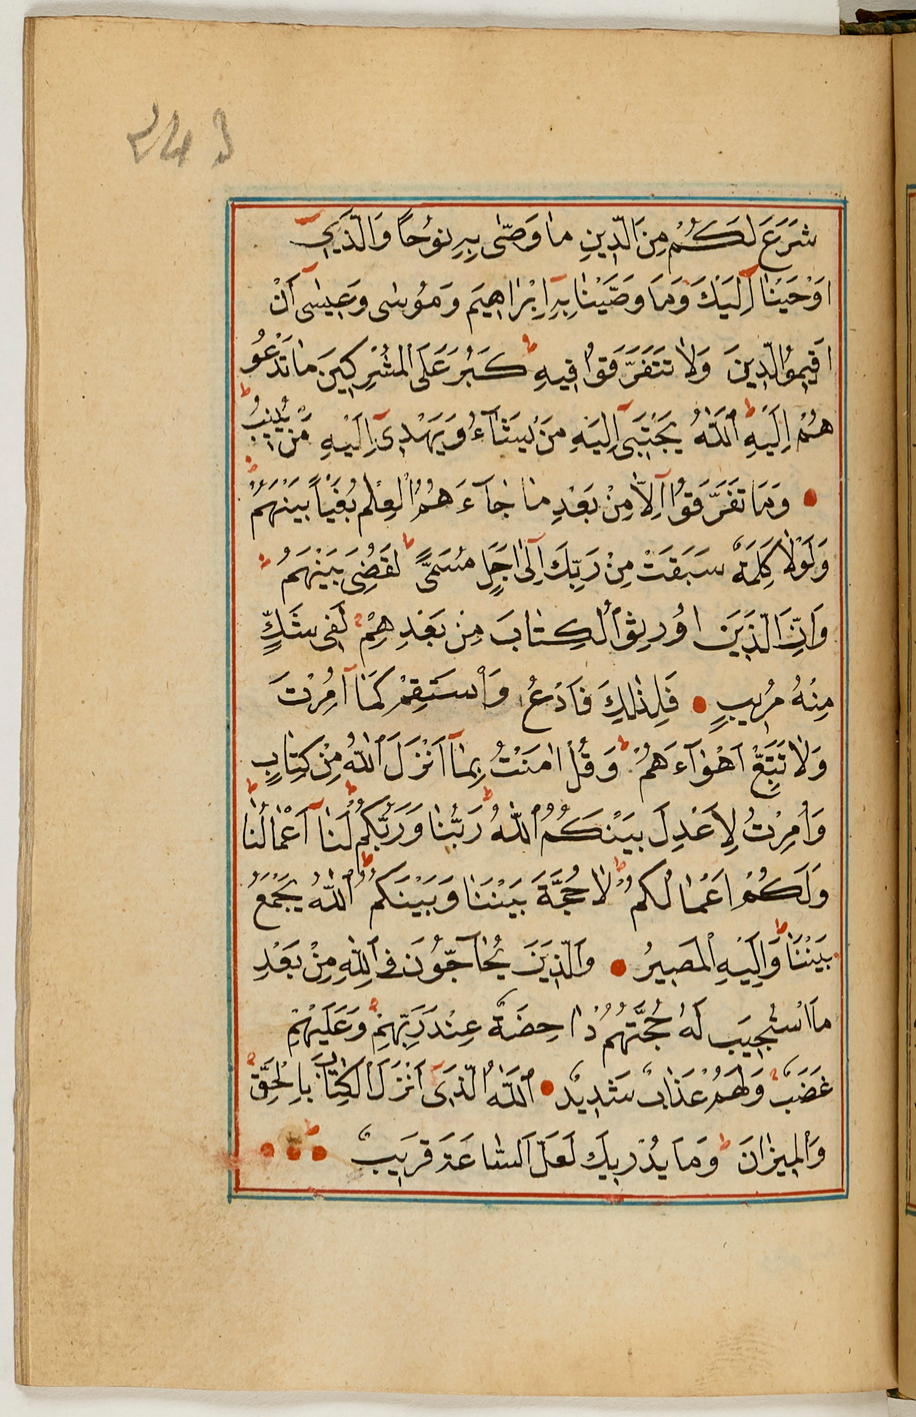 243
شَرَعَ لَكُمْ مِنَ الدّ۪ينِ مَا وَصّٰى بِه۪ نُوحًا وَالَّذ۪ٓي
اَوْحَيْنَٓا اِلَيْكَ وَمَا وَصَّيْنَا بِه۪ٓ اِبْرٰه۪يمَ وَمُوسٰى وَع۪يسٰٓى اَنْ
اَق۪يمُوا الدّ۪ينَ وَلَا تَتَفَرَّقُوا ف۪يهِۜ كَبُرَ عَلَى الْمُشْرِك۪ينَ مَا تَدْعُو
هُمْ اِلَيْهِۜ اَللّٰهُ يَجْتَب۪ٓي اِلَيْهِ مَنْ يَشَٓاءُ وَيَهْد۪ٓي اِلَيْهِ مَنْ يُن۪يبُ
وَمَا تَفَرَّقُٓوا اِلَّا مِنْ بَعْدِ مَا جَٓاءَ هُمُ الْعِلْمُ بَغْيًا بَيْنَهُمْ
وَلَوْلَا كَلِمَةٌ سَبَقَتْ مِنْ رَبِّكَ اِلٰٓى اَجَلٍ مُسَمًّى لَقُضِيَ بَيْنَهُمْ
وَاِنَّ الَّذ۪ينَ اُورِثُوا الْكِتَابَ مِنْ بَعْدِهِمْ لَف۪ي شَكٍّ
مِنْهُ مُر۪يبٍ فَلِذٰلِكَ فَادْعُ وَاسْتَقِمْ كَمَٓا اُمِرْتَ
وَلَا تَتَّبِعْ اَهْوَٓاءَهُمْ وَقُلْ اٰمَنْتُ بِمَٓا اَنْزَلَ اللّٰهُ مِنْ كِتَابٍ
وَاُمِرْتُ لِاَعْدِلَ بَيْنَكُمُ اَللّٰهُ رَبُّنَا وَرَبُّكُمْ لَنَٓا اَعْمَالُنَا
وَلَكُمْ اَعْمَالُكُمْ لَا حُجَّةَ بَيْنَنَا وَبَيْنَكُمْ اَللّٰهُ يَجْمَعُ
بَيْنَنَا وَاِلَيْهِ الْمَص۪يرُ وَالَّذ۪ينَ يُحَٓاجُّونَ فِي اللّٰهِ مِنْ بَعْدِ
مَا اسْتُج۪يبَ لَهُ حُجَّتُهُمْ دَاحِضَةٌ عِنْدَ رَبِّهِمْ وَعَلَيْهِمْ
غَضَبٌ وَلَهُمْ عَذَابٌ شَد۪يدٌ اَللّٰهُ الَّذ۪ٓي اَنْزَلَ الْكِتَابَ بِالْحَقِّ
وَالْم۪يزَانَ وَمَا يُدْر۪يكَ لَعَلَّ السَّاعَةَ قَر۪يبٌ